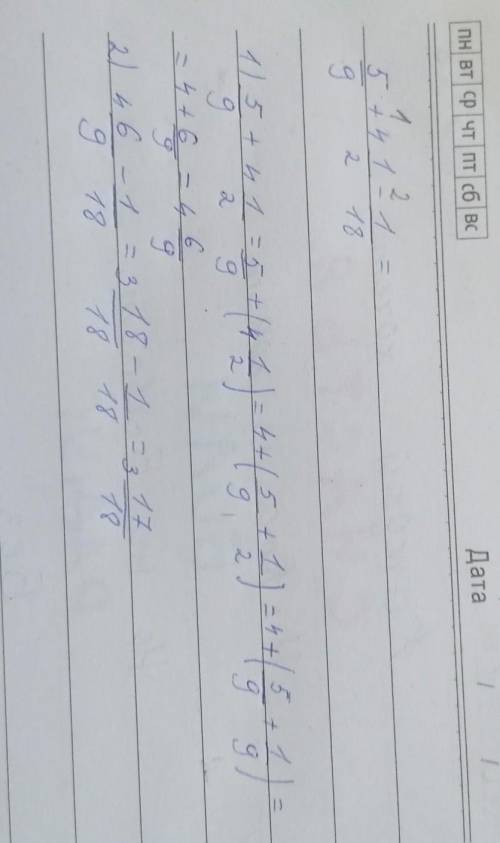 пн вт ср чт пт сб вс Дата / /
5/9 +¹ 4 1/2 -² 1/18 =
1) 5/9 + 4 1/2 = 5/9 + (4 1/2) = 4 + (5/9 + 1/2) = 4 + (5/9 + 1/9) =
= 4 + 6/9 = 4 6/9
2) 4 6/9 - 1/18 = 3 18/18 - 1/18 = 3 17/18